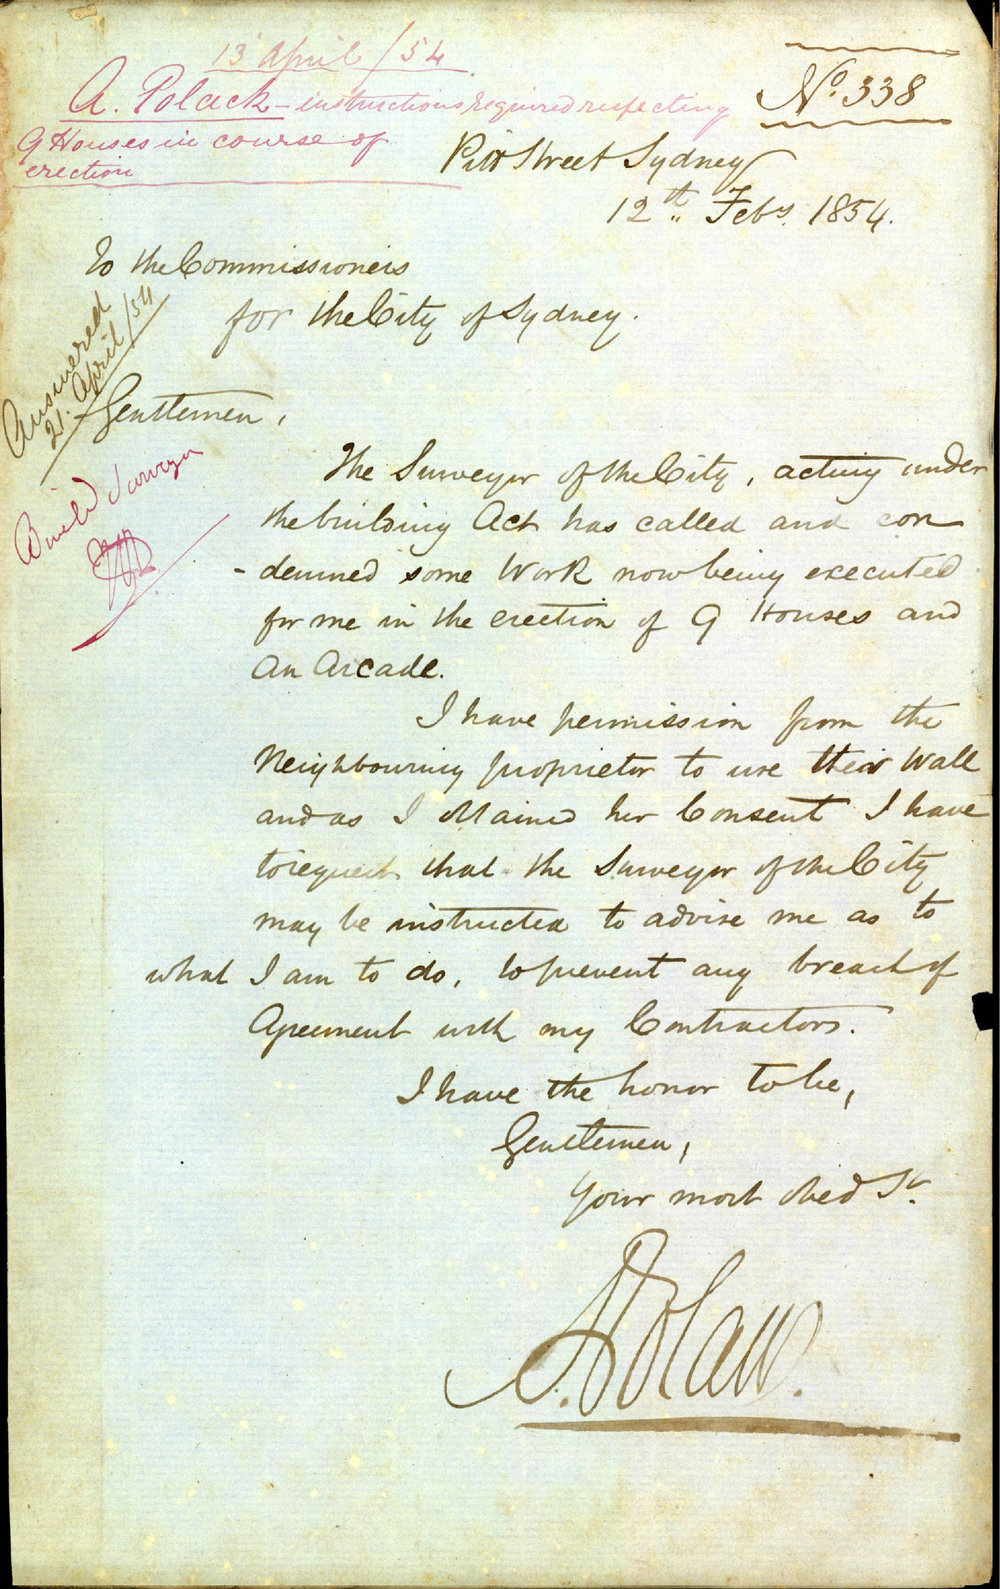 13 April / 54
A. Polack - instructions required respecting
9 Houses in course of
erection
No. 338
Pitt Street Sydney
12th Feby. 1854.
To the Commissioners
for the City of Sydney.
Answered
21. April / 54
Gentlemen,
Build Surveyor
The Surveyor of the City, acting under
the building Act has called and con
-demned some Work now being executed
for me in the erection of 9 Houses and
an Arcade.
I have permission from the
Neighbouring proprietor to use their Wall
and as I obtained her Consent I have
to request that the Surveyor of the City
may be instructed to advise me as to
what I am to do, to prevent any breach of
Agreement with my Contractors.
I have the honor to be,
Gentlemen,
Your most obed Sr.
A. Polack.